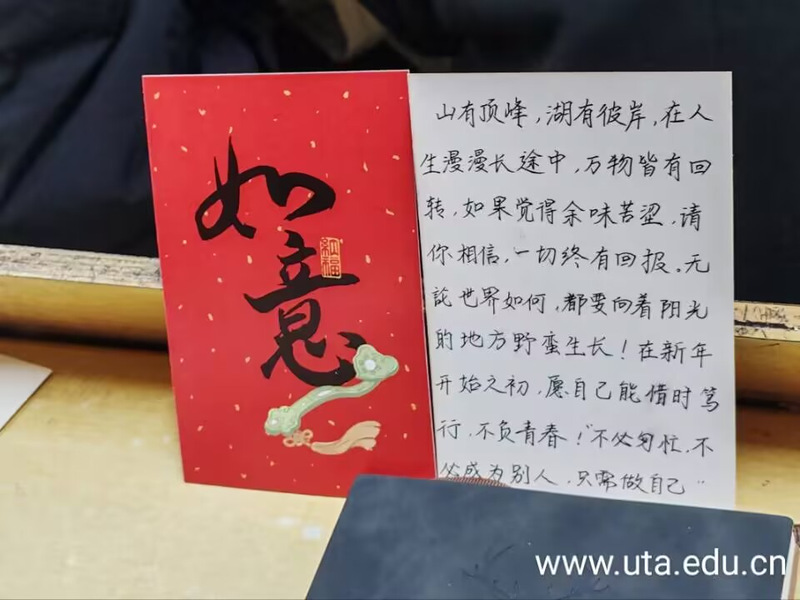 如
意
納福
山有顶峰，湖有彼岸，在人
生漫漫长途中，万物皆有回
转，如果觉得余味苦涩，请
你相信，一切终有回报。无
论世界如何，都要向着阳光
的地方野蛮生长！在新年
开始之初，愿自己能惜时笃
行，不负青春！"不必匆忙，不
必成为别人，只需做自己"
www.uta.edu.cn